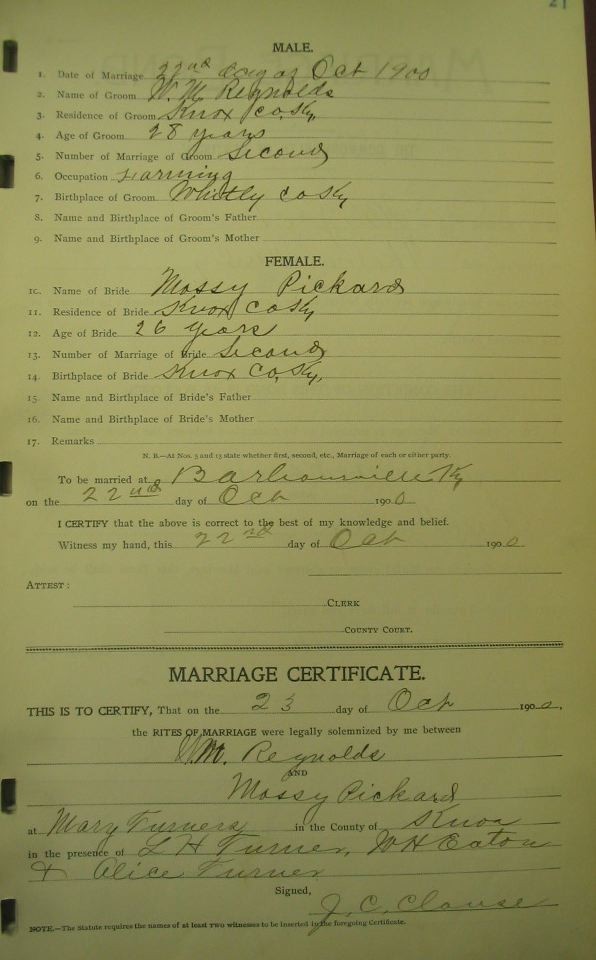 21
MALE.
1. Date of Marriage 22nd day of Oct 1900
2. Name of Groom W. M. Reynolds
3. Residence of Groom Knox Co, Ky,
4. Age of Groom 28 years
5. Number of Marriage of Groom Second
6. Occupation Farming
7. Birthplace of Groom Whitly Co Ky
8. Name and Birthplace of Groom's Father
9. Name and Birthplace of Groom's Mother
FEMALE.
10. Name of Bride Mossy Pickard
11. Residence of Bride Knox Co Ky
12. Age of Bride 26 years
13. Number of Marriage of Bride Second
14. Birthplace of Bride Knox Co, Ky,
15. Name and Birthplace of Bride's Father
16. Name and Birthplace of Bride's Mother
17. Remarks
N. B.—At Nos. 5 and 13 state whether first, second, etc., Marriage of each or either party.
To be married at Barbourville Ky
on the 22nd day of Oct 1900
I CERTIFY that the above is correct to the best of my knowledge and belief.
Witness my hand, this 22nd day of Oct 1900
ATTEST:
CLERK
COUNTY COURT.
MARRIAGE CERTIFICATE.
THIS IS TO CERTIFY, That on the 23 day of Oct 1900.
the RITES OF MARRIAGE were legally solemnized by me between
W.M. Reynolds
AND
Mossy Pickard
at Mary Turners in the County of Knox
in the presence of L H Turner, W H Eaton
& Alice Turner
Signed,
J. C. Clouse
NOTE.—The Statute requires the names of at least two witnesses to be inserted in the foregoing Certificate.